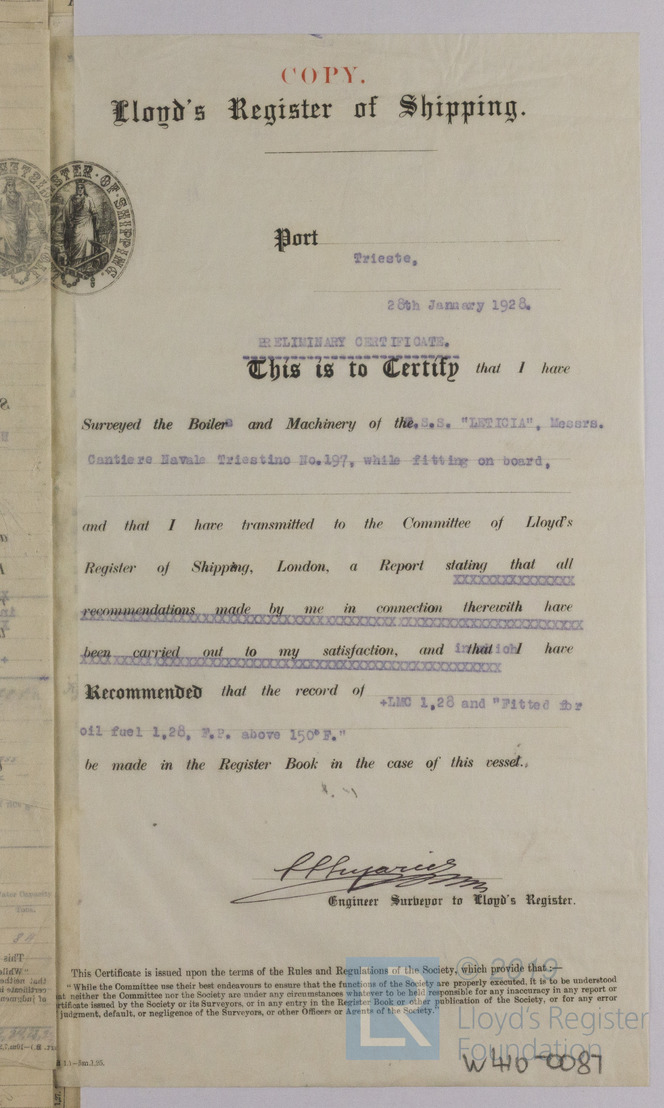 COPY.
Lloyd's Register of Shipping.
REGISTER·OF·SHIPPING.
Port
Trieste,
28th January 1928.
PRELIMINARY CERTIFICATE.
This is to Certify that I have
Surveyed the Boilers and Machinery of the S.S. "LETICIA", Messrs.
Cantiere Navale Triestino No.197, while fitting on board,
and that I have transmitted to the Committee of Lloyd's
Register of Shipping, London, a Report stating that all
recommendations made by me in connection therewith have
been carried out to my satisfaction, and in which I have
Recommended that the record of +LMC 1,28 and "Fitted for
oil fuel 1,28, F.P. above 150°F."
be made in the Register Book in the case of this vessel.
Engineer Surveyor to Lloyd's Register.
This Certificate is issued upon the terms of the Rules and Regulations of the Society, which provide that :—
"While the Committee use their best endeavours to ensure that the functions of the Society are properly executed, it is to be understood
at neither the Committee nor the Society are under any circumstances whatever to be held responsible for any inaccuracy in any report or
rtificate issued by the Society or its Surveyors, or in any entry in the Register Book or other publication of the Society, or for any error
judgment, default, or negligence of the Surveyors, or other Officers or Agents of the Society."
© 2019
Lloyd's Register
Foundation
W410-0087